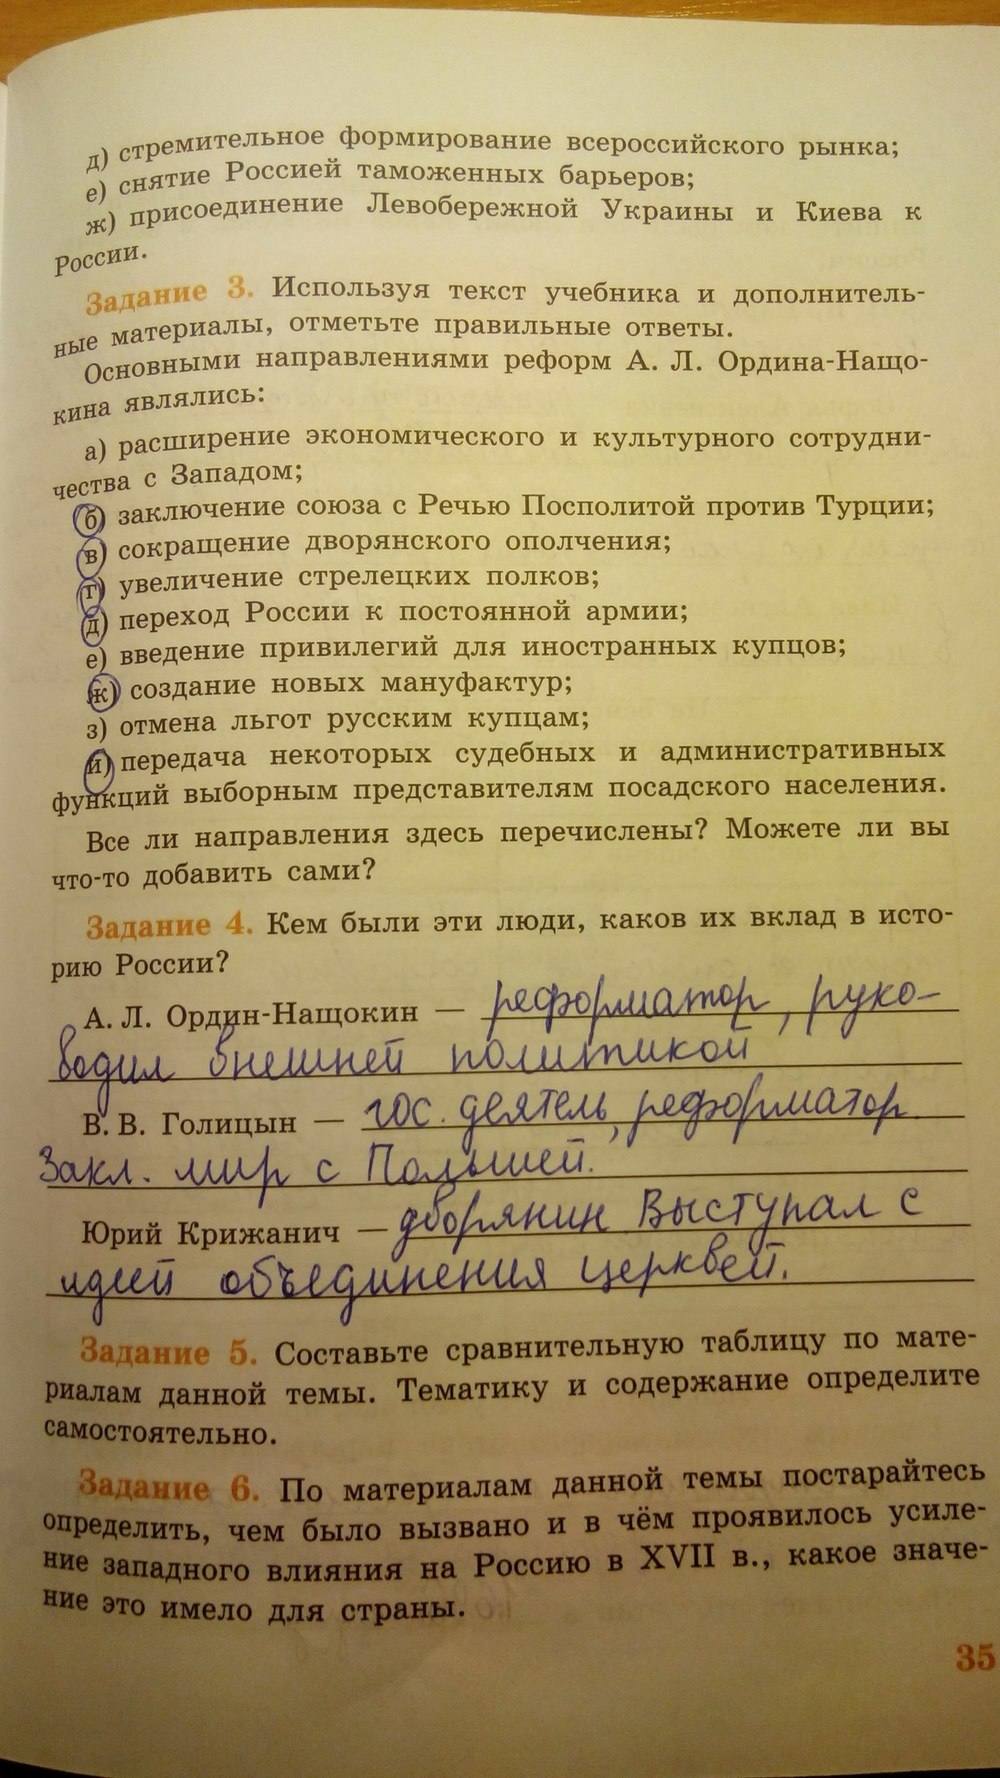 д) стремительное формирование всероссийского рынка;
е) снятие Россией таможенных барьеров;
ж) присоединение Левобережной Украины и Киева к
России.
Задание 3. Используя текст учебника и дополнитель-
ные материалы, отметьте правильные ответы.
Основными направлениями реформ А. Л. Ордина-Нащо-
кина являлись:
а) расширение экономического и культурного сотрудни-
чества с Западом;
б) заключение союза с Речью Посполитой против Турции;
в) сокращение дворянского ополчения;
г) увеличение стрелецких полков;
д) переход России к постоянной армии;
е) введение привилегий для иностранных купцов;
ж) создание новых мануфактур;
з) отмена льгот русским купцам;
и) передача некоторых судебных и административных
функций выборным представителям посадского населения.
Все ли направления здесь перечислены? Можете ли вы
что-то добавить сами?
Задание 4. Кем были эти люди, каков их вклад в исто-
рию России?
А. Л. Ордин-Нащокин — реформатор, руко-
водил внешней политикой
В. В. Голицын — гос. деятель, реформатор
Закл. мир с Польшей.
Юрий Крижанич — дворянин Выступал с
идеей объединения церквей.
Задание 5. Составьте сравнительную таблицу по мате-
риалам данной темы. Тематику и содержание определите
самостоятельно.
Задание 6. По материалам данной темы постарайтесь
определить, чем было вызвано и в чём проявилось усиле-
ние западного влияния на Россию в XVII в., какое значе-
ние это имело для страны.
35